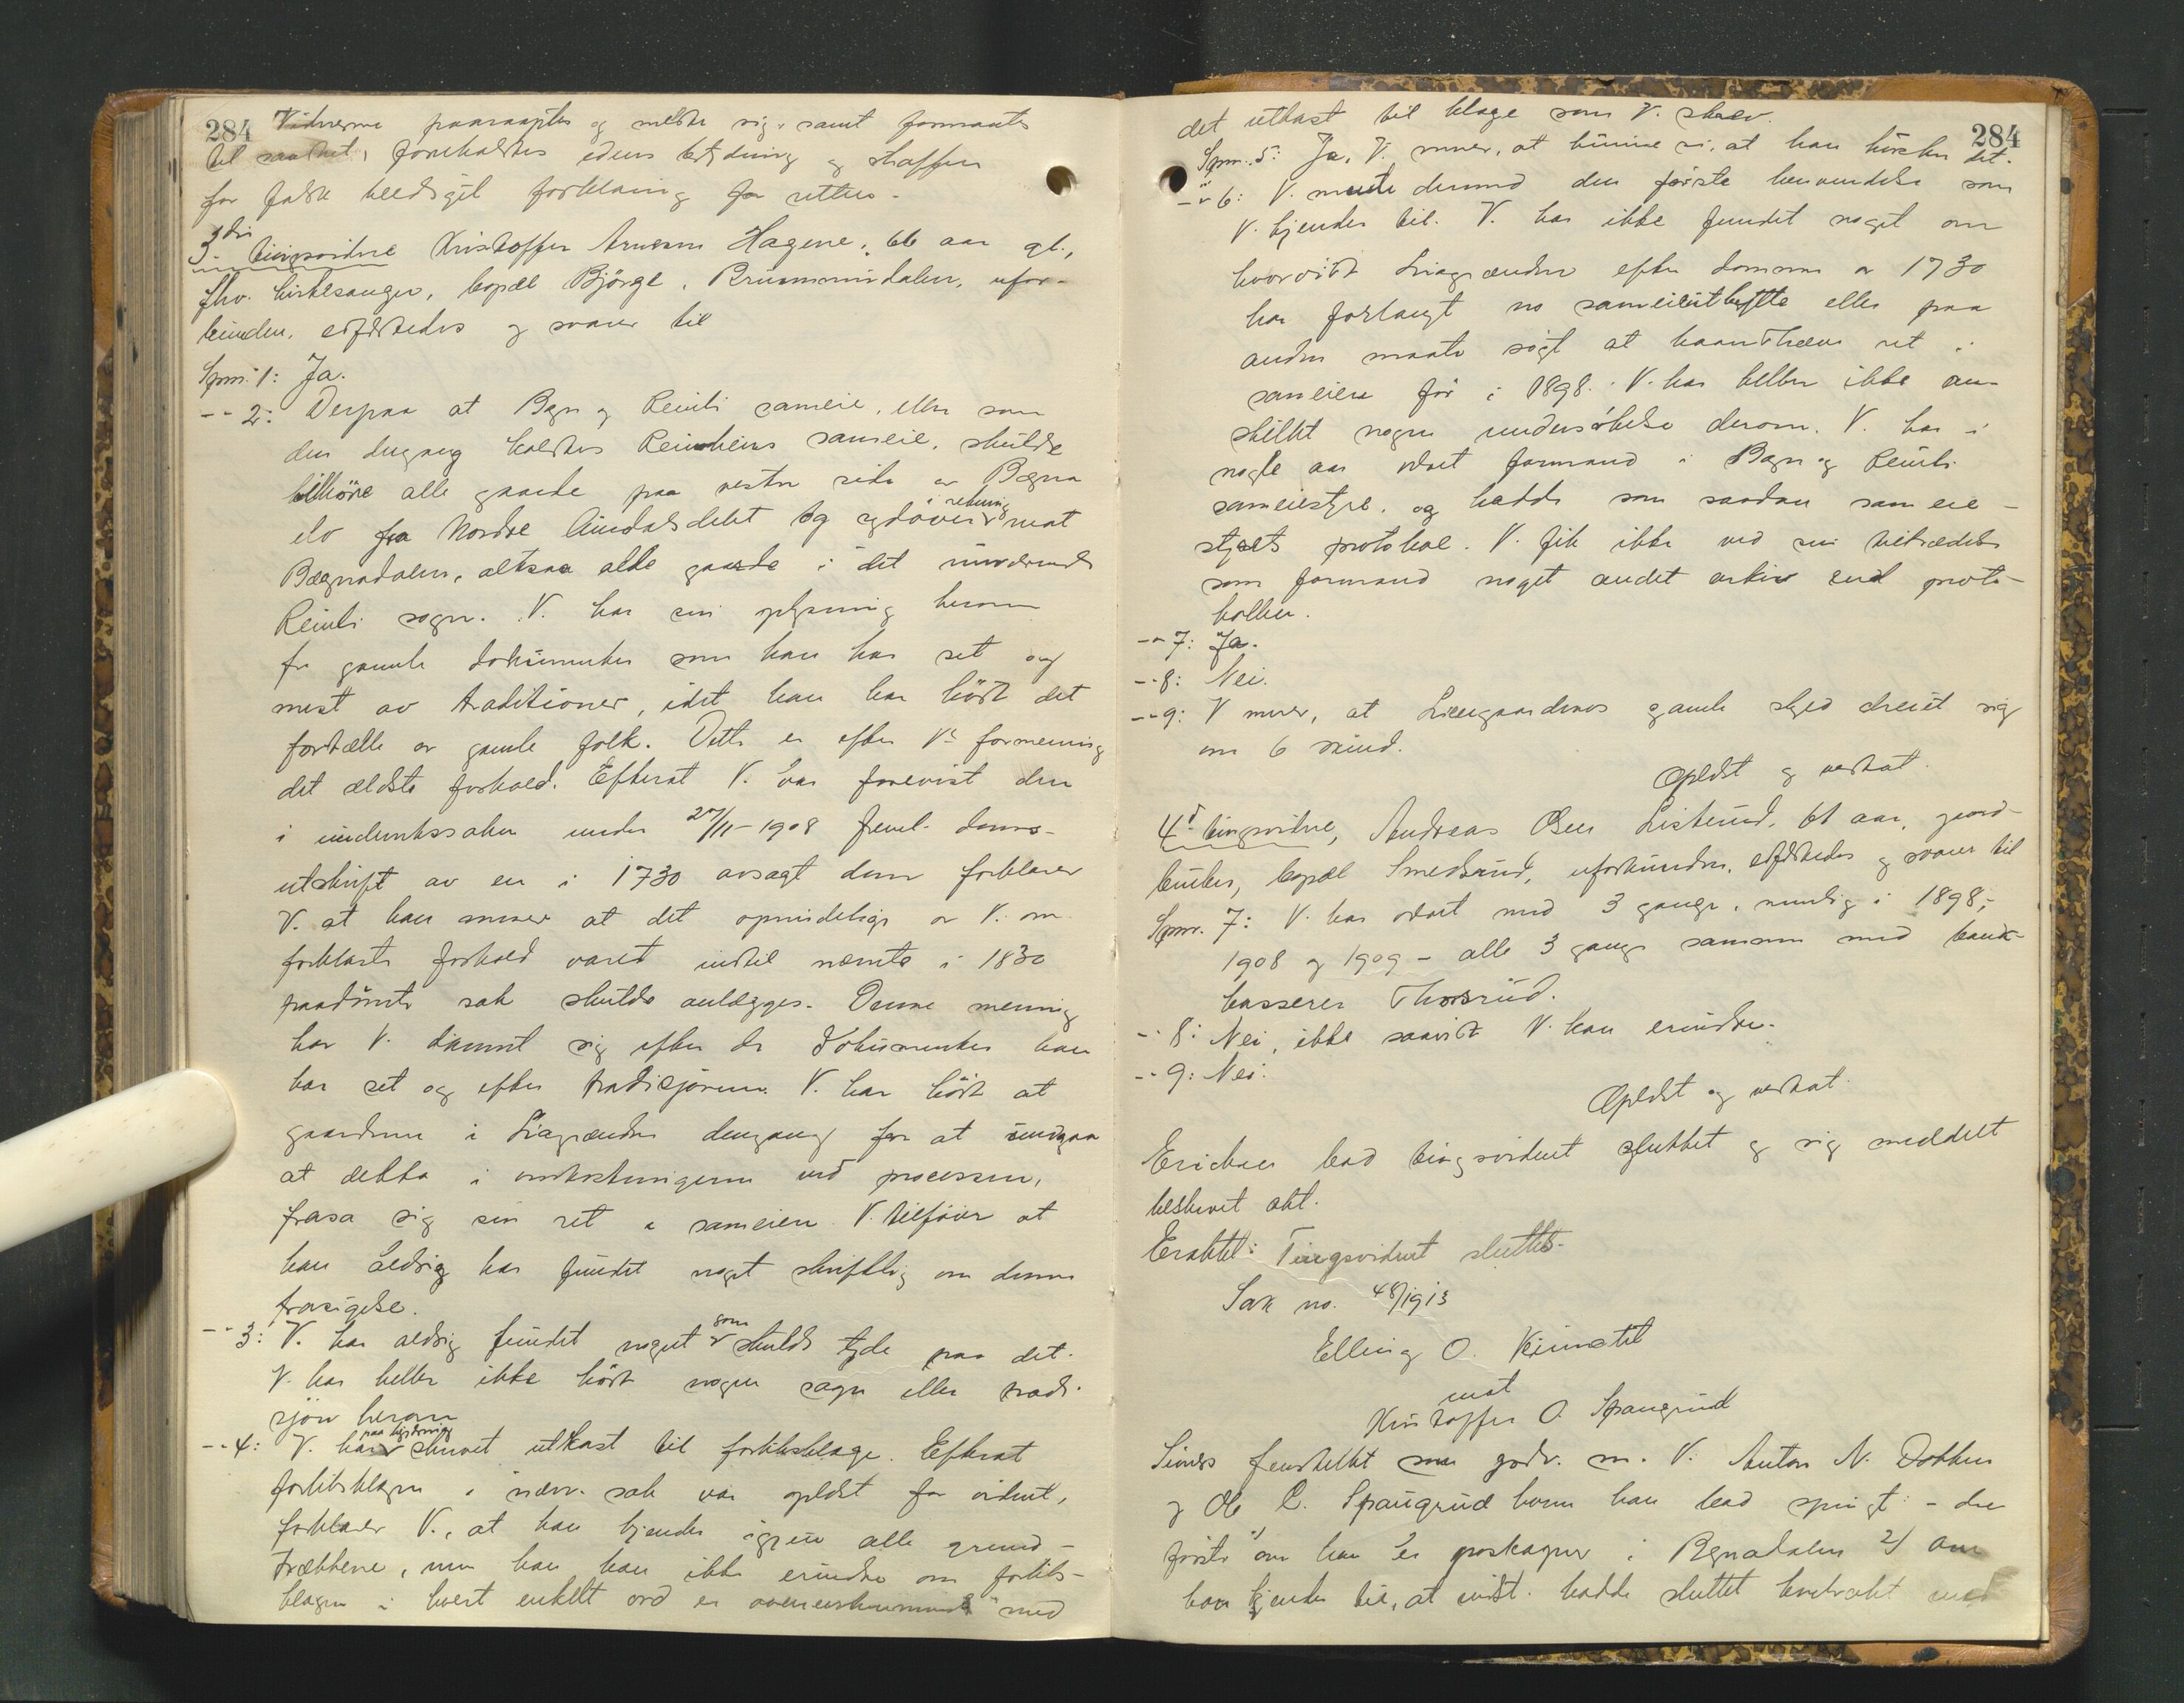 284
Vidnerne paaraaptes og meldte sig, samt formantes
til sandhet, foreholdtes edens betydning og straffen
for falsk beediget forklaring for retten.
3dje tingsvidne Kristoffer Arnesen Hagene, 66 aar gl.,
fhv. kirkesanger, bopæl Bjørge, Brummunddalen, ufor-
bunden, edfæstedes og svarer til
Spm. 1: Ja.
-"- 2: Derpaa at Bagn og Reinli sameie, eller som
den dengang kaldtes Reinheims sameie, skulde
tilhøre alle gaarde paa vestre side av Bægna
elv fra Nordre Aurdalsdelet og sydover i retning mot
Bægnadalen, altsaa alle gaarde i det nuværende
Reinli sogn. V. har sin oplysning herom
fra gamle dokumenter som han har set og
mest av traditioner, idet han har hørt det
fortælle av gamle folk. Dette er efter V's formening
det ældste forhold. Efterat V. var forevist den
i underretssaken under 27/11-1908 freml. doms-
utskrift av en i 1730 avsagt dom forklarer
V. at han mener at det oprindelige av V. om
forklarte forhold varet indtil nævnte i 1830
paadømte sak skulde anlægges. Denne mening
har V. dannet sig efter de dokumenter han
har set og efter tradisjonen. V. har hørt at
gaardene i Liagrænden dengang for at undgaa
at delta i omkostningerne ved processen,
frasa sig sin ret i sameien. V. tilføier at
han aldrig har fundet noget skriftlig om denne
frasigelse.
-"- 3: V. har aldrig fundet noget som skulde tyde paa det.
V. har heller ikke hørt nogen sagn eller tradi-
sjon herom
-"- 4: V. har paa begjæring skrevet utkast til forliksklage. Efterat
forliksklagen i nærv. sak var oplæst for vidnet,
forklarer V., at han kjender igjen alle grund-
trækkene, men han kan ikke erindre om forliks-
klagen i hvert enkelt ord er overensstemmende med
284
det utkast til klage som V. skrev.
Spm. 5: Ja, V. mener, at kunne si, at han husker det.
-"- 6: V. mente dermed den første henvendelse som
V. kjender til. V. har ikke fundet noget om
hvorvidt Liagrænden efter dommen av 1730
har forlangt no sameieutbytte eller paa
anden maate søgt at haandhæve ret i
sameien før i 1898. V. har heller ikke an-
stillet nogen undersøkelse derom. V. har i
nogle aar været formand i Bagn og Reinli
sameiestyre, og hadde som saadan sameie-
styrets protokol. V. fik ikke ved sin tiltrædelse
som formand noget andet arkiv end proto-
kollen.
-"- 7: Ja.
-"- 8: Nei.
-"- 9: V mener, at Liengaardenes gamle skyld dreiet sig
om 6 skind.
Oplæst og vedtat.
4de tingsvidne, Andreas Olsen Listerud, 61 aar, gaard-
bruker, bopæl Smedsrud, uforbunden, edfæstedes og svarer til
Spm. 7: V. har været med 3 gange, nemlig i 1898,
1908 og 1909 - alle 3 gange sammen med bank-
kasserer Thorsrud.
-"- 8: Nei, ikke saavidt V. kan erindre.
-"- 9: Nei.
Oplæst og vedtat.
Erichsen bad tingsvidnet sluttet og sig meddelt
beskrevet akt.
Eraktet: Tingsvidnet sluttes.
Sak no. 48/1913
Elling O.
mot
Kristoffer O. Spangrud
fremstillet som godv. m. V. Anton N. Dokken
og Ole C. Spangrud hvem han bad spurgt: - den
første 1/ om han er i Bægnadalen 2/ om
han kjender til, at hadde sluttet kontrakt med